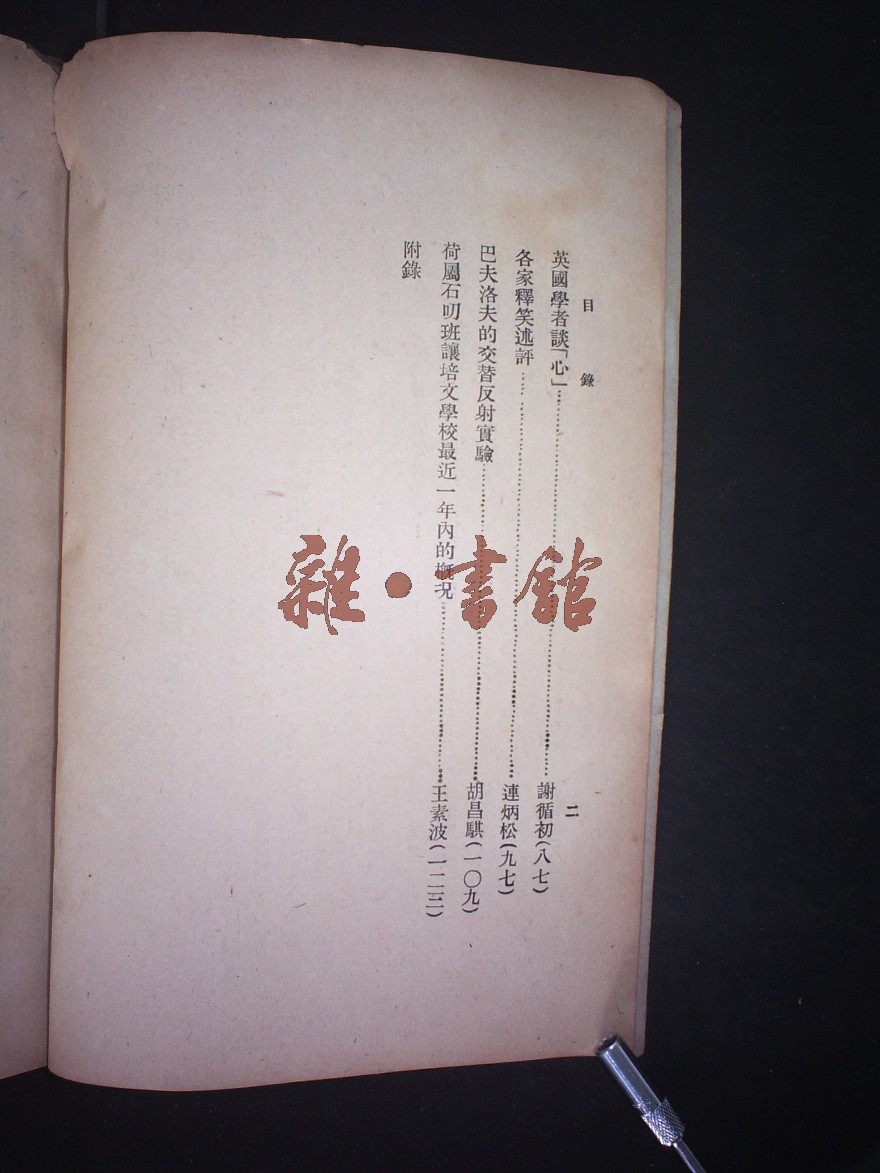 目錄 二
英國學者談「心」……謝循初(八七)
各家釋笑述評……連炳松(九七)
巴夫洛夫的交替反射實驗……胡昌騏(一〇九)
荷屬石叻班讓培文學校最近一年內的概況……王素波(一二三)
附錄
雜·書館